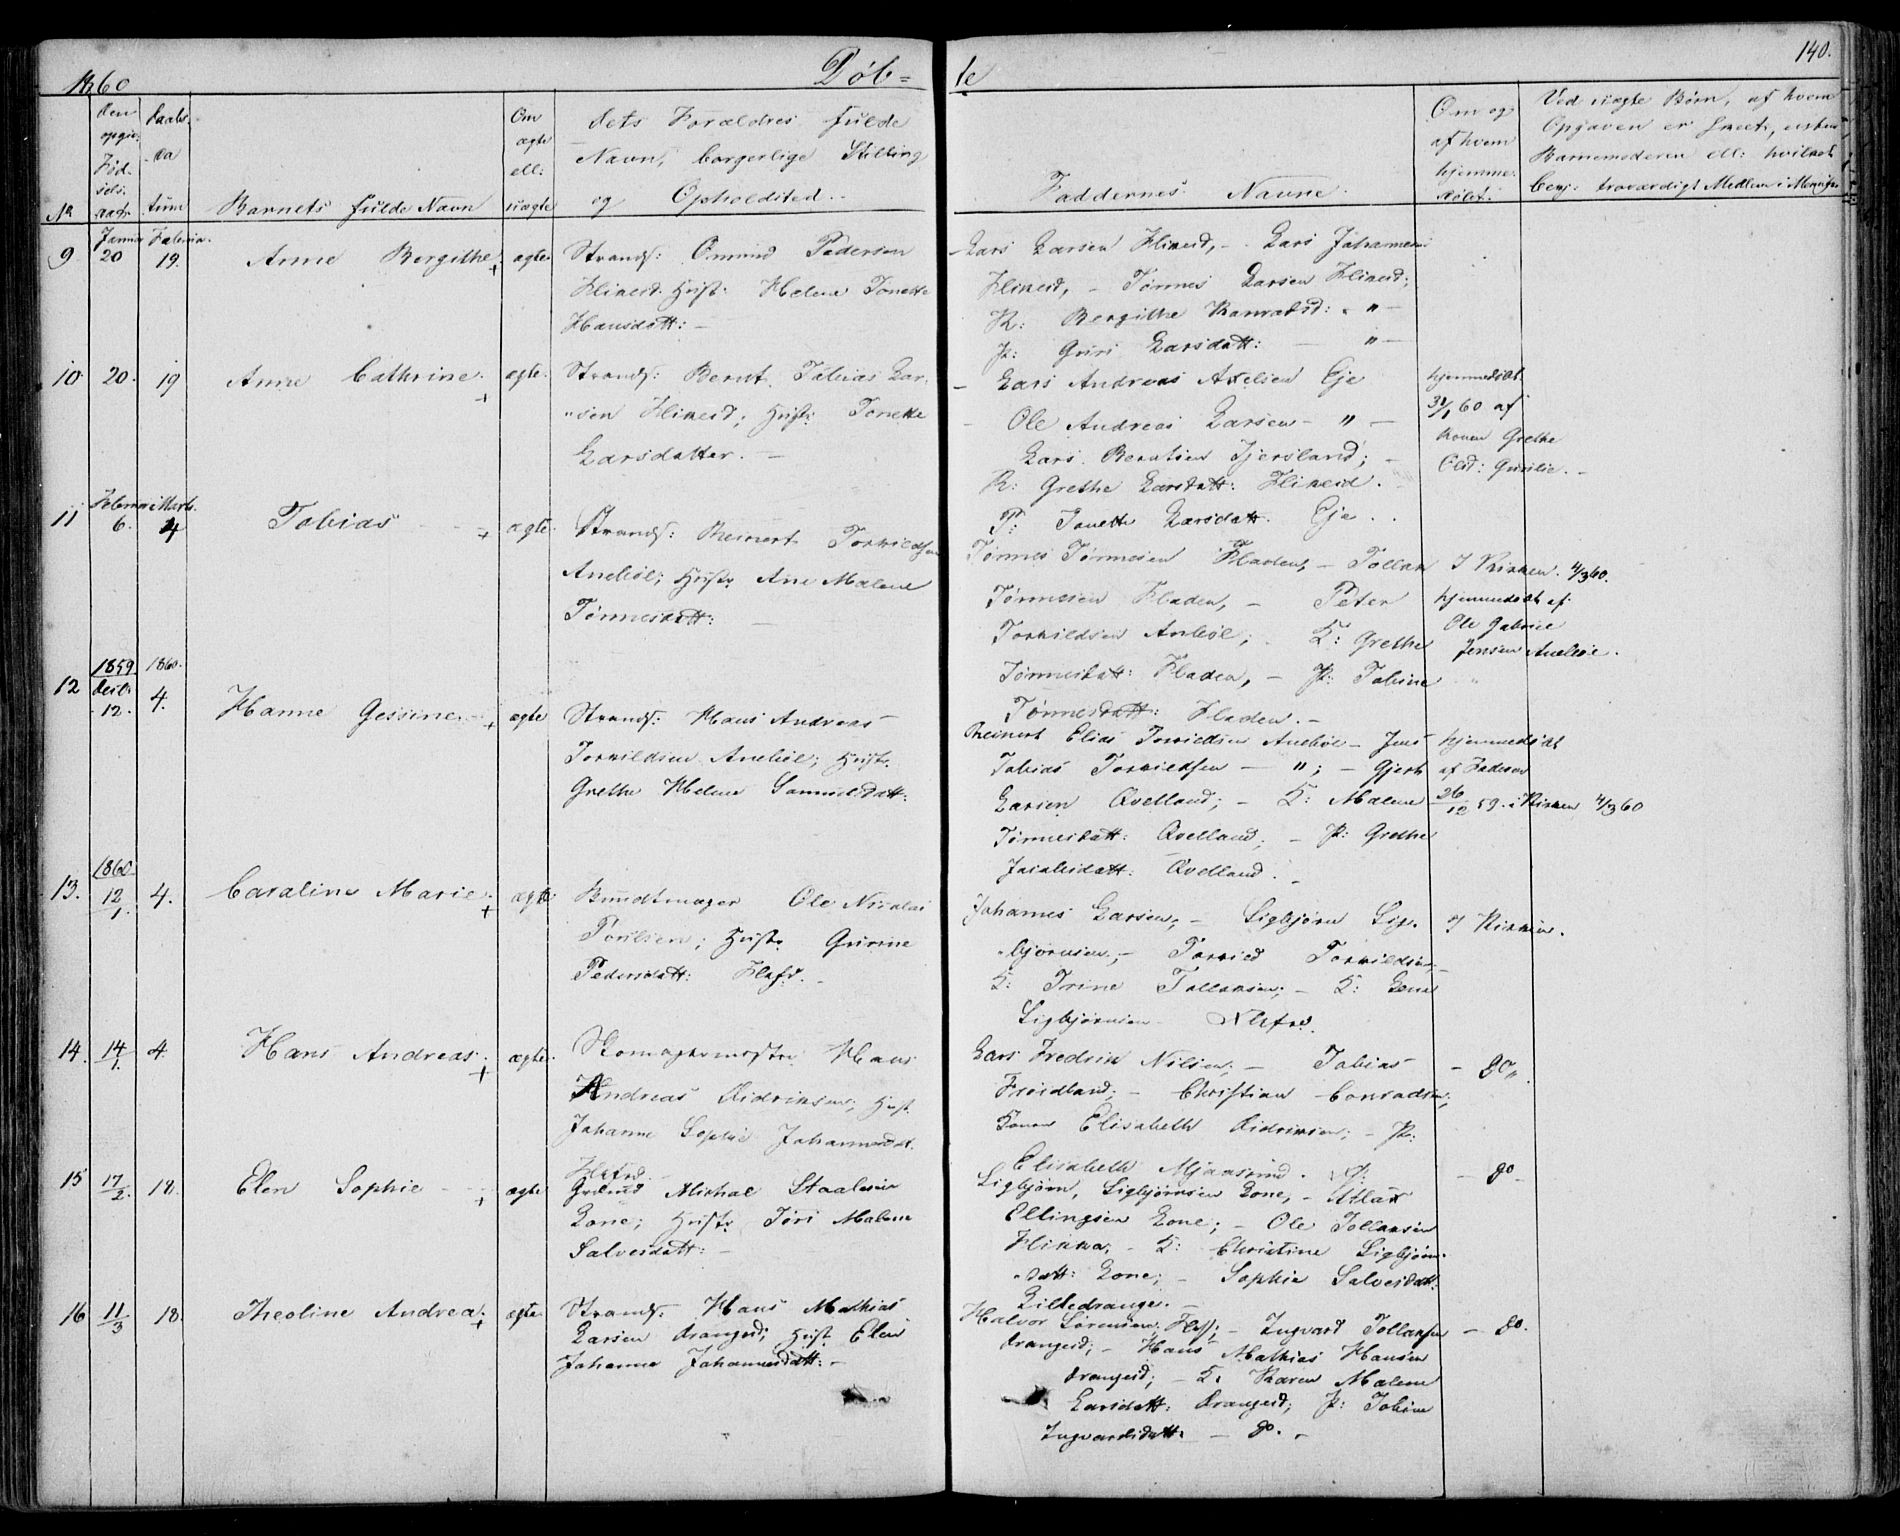 1860 Döb= te 140.
Den opgiv. Fødsels- aar Daabs- Da tum
No Barnets fulde Navn
Om ægte ell: uægte
dets Forældres fulde
Navn, borgerlige Stilling
og Opholdsted.
Faddernes Navne.
Om og
af hvem
hjemme
døbt.
Ved uægte Børn, af hvem
Opgaven er skeet, enten
Barnemoderen ell: hvilket
troværdigt Medlem i Menigh.
9 Januar 20 Februar. 19. Anne Bergithe + ægte
Strands: Omund Pedersen
Flikeid. Hustr. Helene Tonette
Hansdatt: —
Lars Larsen Flikeid, — Lars Johannesen
Flikeid, — Tønnes Larsen Flikeid;
K: Bergithe
P: Guri Larsdatt: — " —
10 20. 19 Anne Cathrine. + ægte.
Strands: Bernt Tobias Lar-
"sen Flikeid; Hustr: Tonette
Larsdatter. —
— Lars Andreas Axelsen Eje
— Ole Andreas Larsen — " —
Lars Berntsen Gjersland; —
K: Grethe Larsdatt: Flikeid.
P: Tonette Larsdatt. Eje . .
hjemmedøbt
31/1 60 af
Konen Grethe
11 Februar 6. Marts. 4 Tobias + ægte.
Strands: Reinert Torkildsen
Anebøe; Hustr Ane Malene
Tønnesdatt: —
Tønnes Tønnesen Fladen, — Tollak
Tønnesen Fladen, — Peter
Torkildsen Anebøe; K: Grethe
Tønnesdatt: Fladen, — P: Tobine
Tønnesdatt: Fladen. —
I Kirken. 4/3 60.
hjemmedøbt af
Ole Gabriel
Jensen Anebøe.
12 1859 Decb. 12. 1860. 4. Hanne Gessine. + ægte
Strands: Hans Andreas
Torkildsen Anebøe; Hustr.
Grethe Helene Samuelsdatt:
Reinert Elias Torkildsen Anebøe — Jens
Tobias Torkildsen — "; — Gjert
Larsen Qvelland; — K: Malene
Tønnesdatt: Qvelland; — P: Grethe
Jacobsdatt: Qvelland. —
hjemmedøbt
af Faderen
26/12 59. i Kirken 4/3 60
13. 1860 12/1. 4. Caroline Marie. + ægte
Bundtmager Ole Nicolai
Poulsen; Hustr. Gurine
Pedersdatt: Flefd. —
Johannes Larsen, — Sigbjørn Sig-
"bjørnsen, — Torkild Torkildsen,
K: Trine Tollaksen; — K: Lene
Sigbjørnsen
I Kirken.
14. 14/1. 4. Hans Andreas. + ægte.
Skomagermestr. Hans
Andreas Didriksen; Hustr.
Johanne Sophie Johannesdatt.
Flefd.
Lars Fredrik Nilsen; — Tobias
Frøidland; — Christian Conradsen;
Konen Elisabeth Didriksen; — P:
Elisabeth Mjaasund.
— do „.
15 17/2. 18. Elen Sophie + ægte
Grdmd Michal Staalesen
Lone; Hustr Tøri Malene
Salvesdatt: —
Sigbjørn, Sigbjørnsen Lone, — Atlak
Ellingsen Lone; — Ole Tollaksen
Flikka, — K: Christine Sigbjørns-
"datt: Lone; — Sophie Salvesdatt:
Lilledrange. —
— do —
16 11/3 18. Theoline Andrea. + ægte.
Strands. Hans Mathias
Larsen Drangeid; Hustr. Elen
Johanne Johannesdatt: —
Halvor Sørensen, Flef; — Ingvard Tollaksen
Drangeid; — Hans Mathias Hansen
Drangeid; — K. Karen Malene
Larsdatt: Drangeid; P: Tobine
Ingvardsdatt: — do. —
— do.